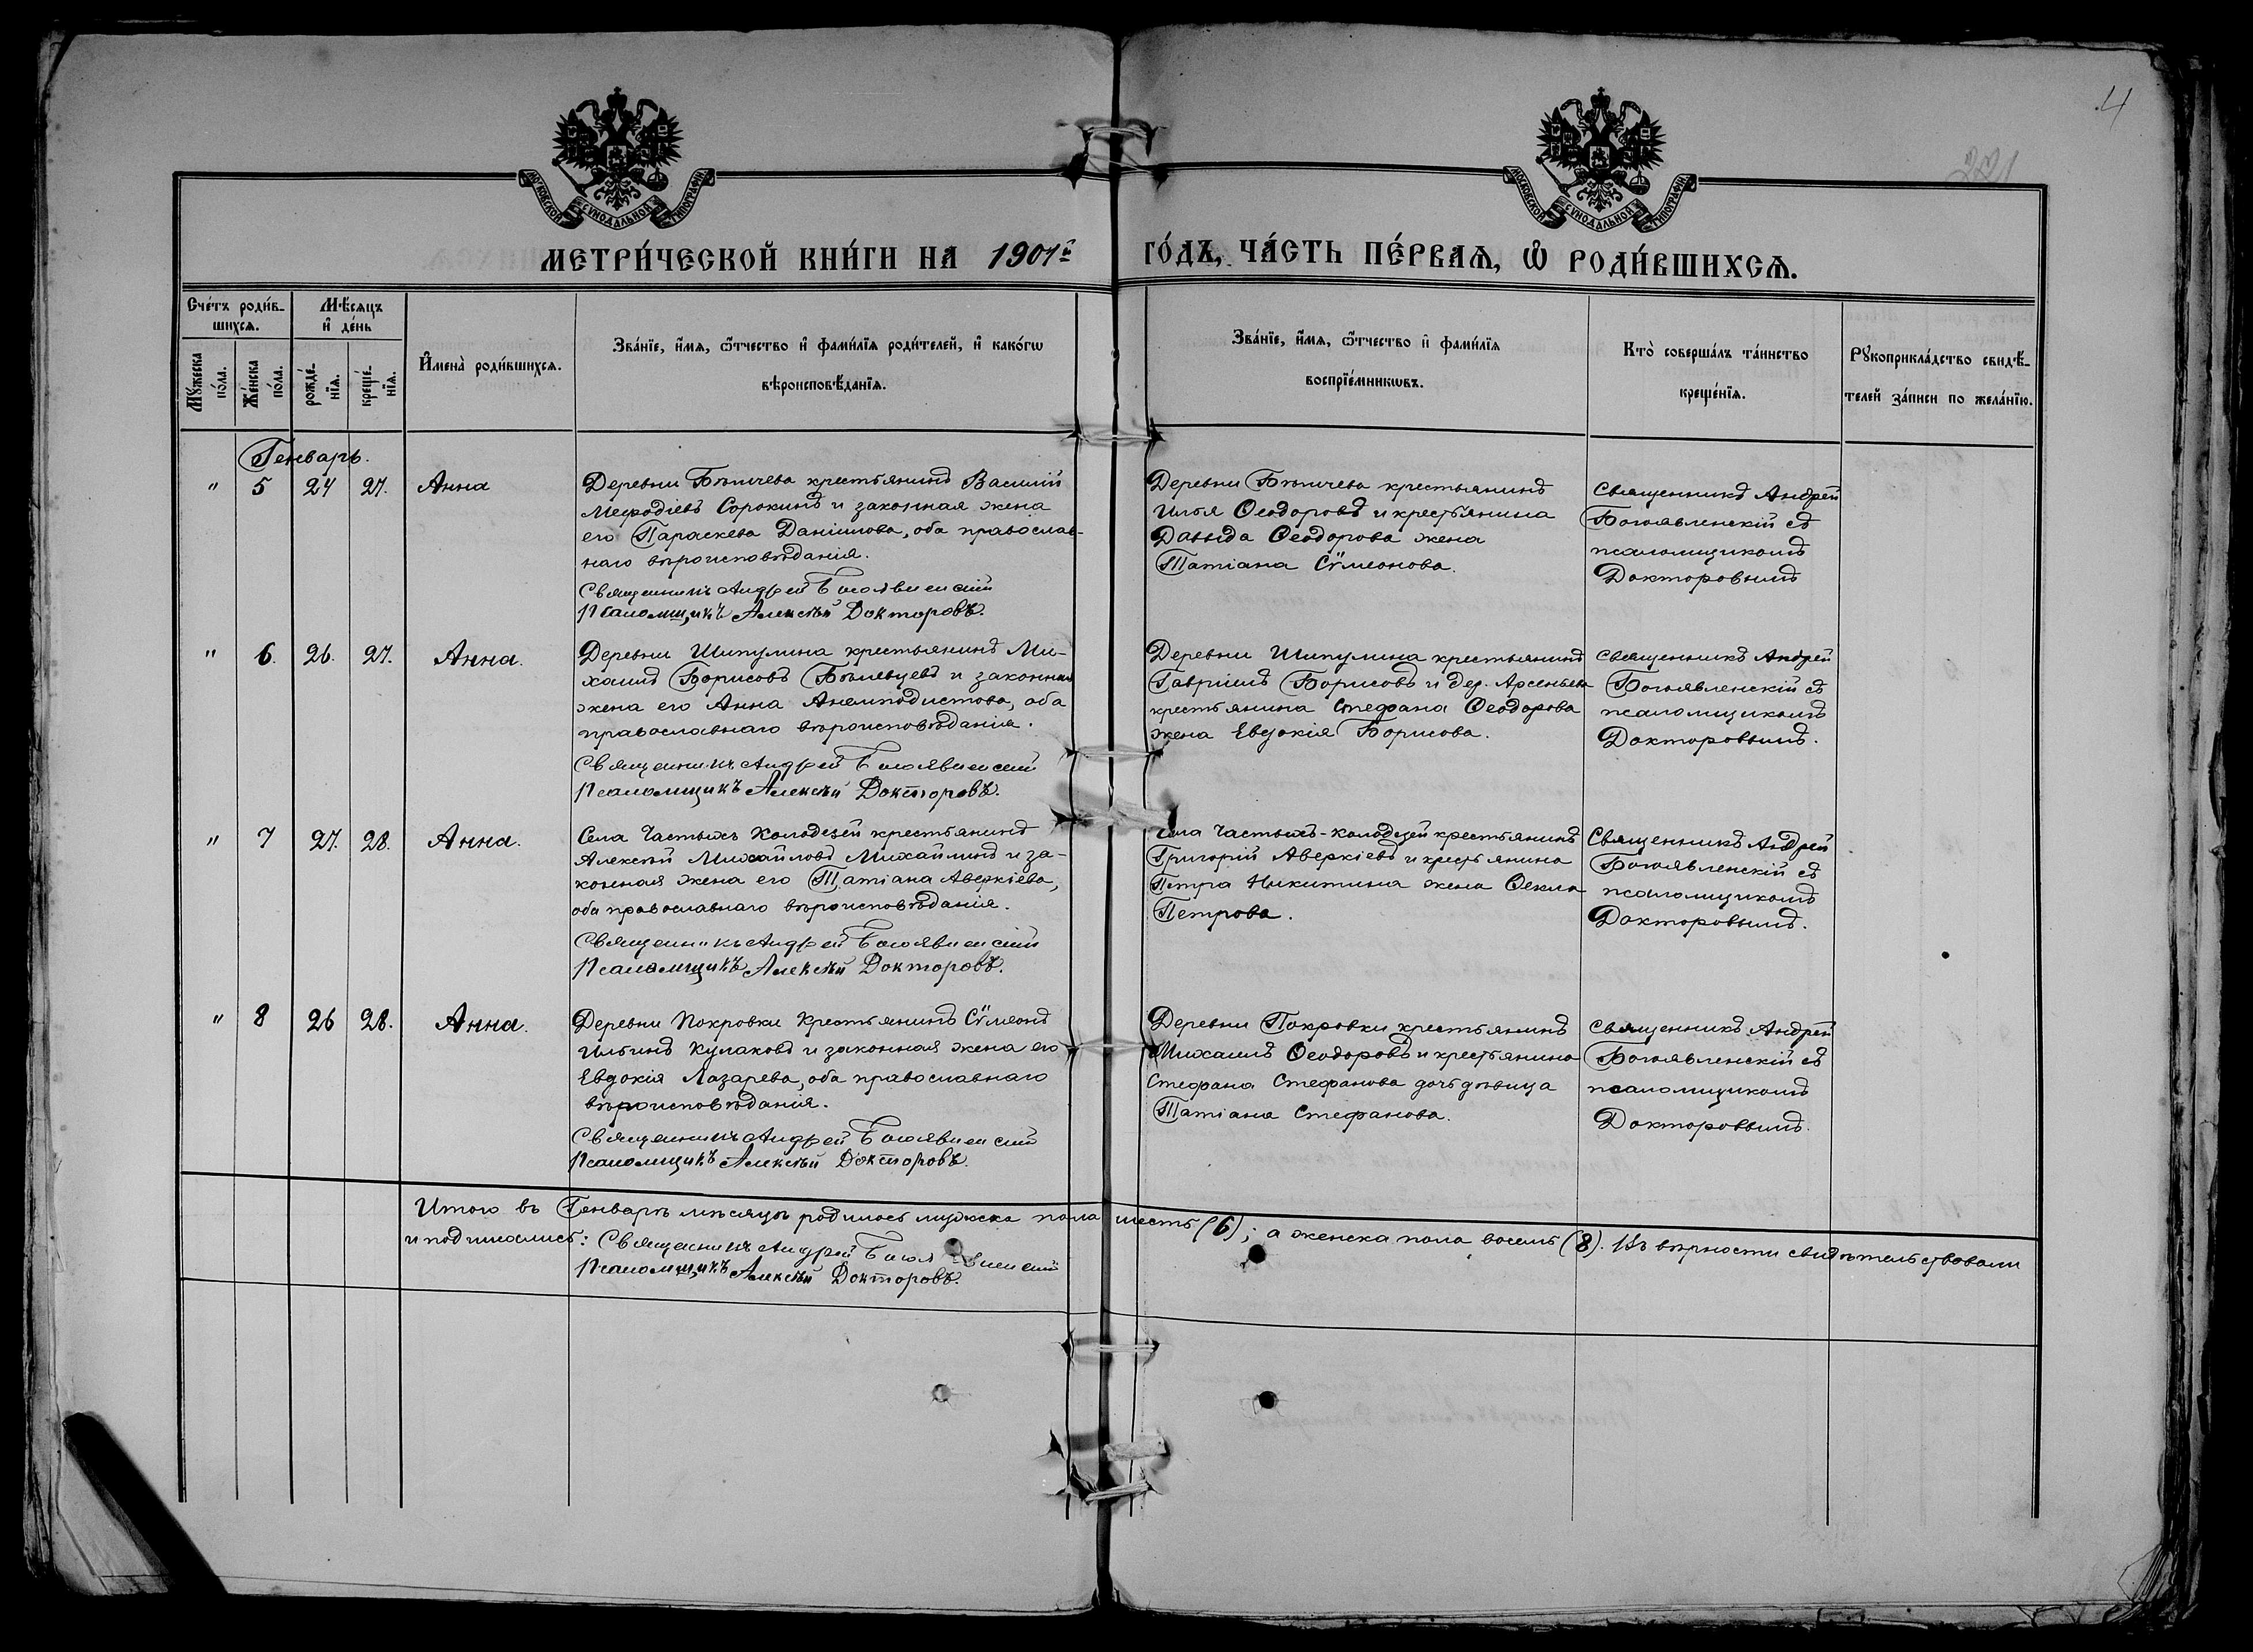 4
221
МОСКОВСКОЙ СѴНОДАЛЬНОЙ ТИПОГРАФІИ.
МОСКОВСКОЙ СѴНОДАЛЬНОЙ ТИПОГРАФІИ.
МЕТРИ́ЧЕСКОЙ КНИ́ГИ НА 1901й ГО́ДЪ, ЧА́СТЬ ПЕ́РВАѦ, Ѽ РОДИ́ВШИХСѦ.
Сче́тъ роди́в-
шихсѧ.
Мѣ́сѧцъ
и҆ де́нь
Мꙋ́жеска
по́ла.
Же́нска
по́ла.
рожде́-
нїѧ.
креще́-
нїѧ.
И҆мена̀ роди́вшихсѧ.
Зва́нїе, и҆́мѧ, ѻ҆́тчество и҆ фами́лїѧ роди́телей, и҆ како́гѡ
вѣроисповѣ́данїѧ.
Зва́нїе, и҆́мѧ, ѻ҆́тчество и҆ фами́лїѧ
воспрїе́мникѡвъ.
Кто̀ соверша́лъ та́инство
креще́нїѧ.
Рꙋкоприкла́дство свидѣ́-
телей за́писи по жела́нїю.
Генварь.
" 5 24 27. Анна
Деревни Бѣпичева крестьянинъ Василій
Меѳодіевъ Сорокинъ и законная жена
его Параскева Даніилова, оба православ-
наго вѣроисповѣданія.
Священникъ Андрей Богоявленскій
Псаломщикъ Алексѣй Докторовъ.
Деревни Бѣпичева крестьянинъ
Илья Ѳеодоровъ и крестьянина
Давыда Ѳеодорова жена
Татіана Сѵмеонова.
Священникъ Андрей
Богоявленскій съ
псаломщикомъ
Докторовымъ
" 6. 26. 27. Анна.
Деревни Шипулина крестьянинъ Ми-
хаилъ Борисовъ Бѣлевцевъ и законная
жена его Анна Анемподистова, оба
православнаго вѣроисповѣданія.
Священникъ Андрей Богоявленскій
Псаломщикъ Алексѣй Докторовъ.
Деревни Шипулина крестьянинъ
Гавріилъ Борисовъ и дер. Арсеньева
крестьянина Стефана Ѳеодорова
жена Евдокія Борисова.
Священникъ Андрей
Богоявленскій съ
псаломщикомъ
Докторовымъ.
" 7 27. 28. Анна.
Села Частыхъ Колодезей крестьянинъ
Алексѣй Михайловъ Михайлинъ и за-
конная жена его Татіана Аверкіева,
оба православнаго вѣроисповѣданія.
Священникъ Андрей Богоявленскій
Псаломщикъ Алексѣй Докторовъ.
Села Частыхъ-Колодезей крестьянинъ
Григорій Аверкіевъ и крестьянина
Петра Никитина жена Ѳекла
Петрова.
Священникъ Андрей
Богоявленскій съ
псаломщикомъ
Докторовымъ.
" 8 26 28. Анна.
Деревни Покровки крестьянинъ Сѵмеонъ
Ильинъ Кулаковъ и законная жена его
Евдокія Лазарева, оба православнаго
вѣроисповѣданія.
Священникъ Андрей Богоявленскій
Псаломщикъ Алексѣй Докторовъ.
Деревни Покровки крестьянинъ
Михаилъ Ѳеодоровъ и крестьянина
Стефана Стефанова дочь дѣвица
Татіана Стефанова.
Священникъ Андрей
Богоявленскій съ
псаломщикомъ
Докторовымъ.
Итого въ Генварѣ мѣсяцѣ родилось мужска пола шесть (6); а женска пола восемь (8). Къ вѣрности свидѣтельствовали
и подписались: Священникъ Андрей Богоявленскій
Псаломщикъ Алексѣй Докторовъ.